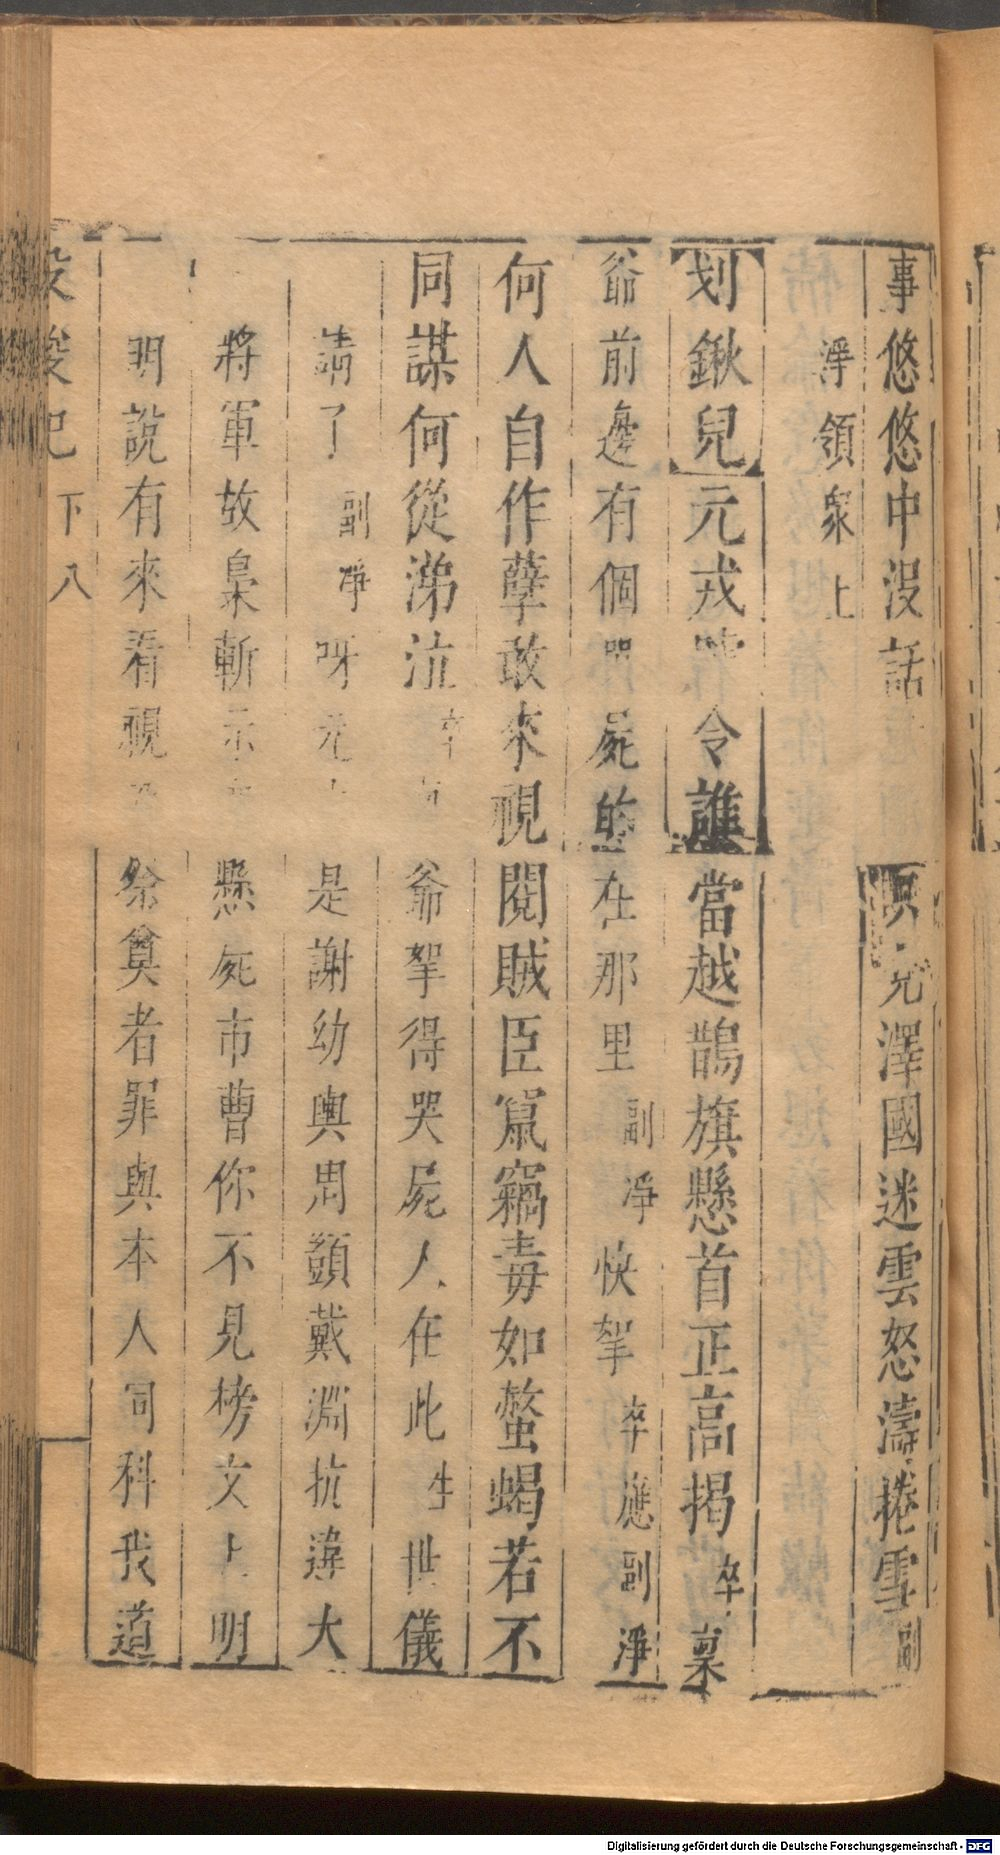 事悠悠中没話 暝光澤國迷雲怒濤捲雪副
淨領衆上
剗鍬兒元戎 令誰當越鵲旗懸首正高揭卒稟
爺前邊有個 屍的在那里副淨快拏卒應副淨
何人自作孽敢來視閱賊臣窮竊毒如螫蝎若不
同謀何從涕泣 爺拏得哭屍人在此生世儀
請了副淨呀元 是謝幼輿周顗戴淵抗違大
將軍故梟斬示 懸屍市曹你不見榜文上明
明說有來看視 祭奠者罪與本人同科我道
投梭記 下 八
Digitalisierung gefördert durch die Deutsche Forschungsgemeinschaft - DFG